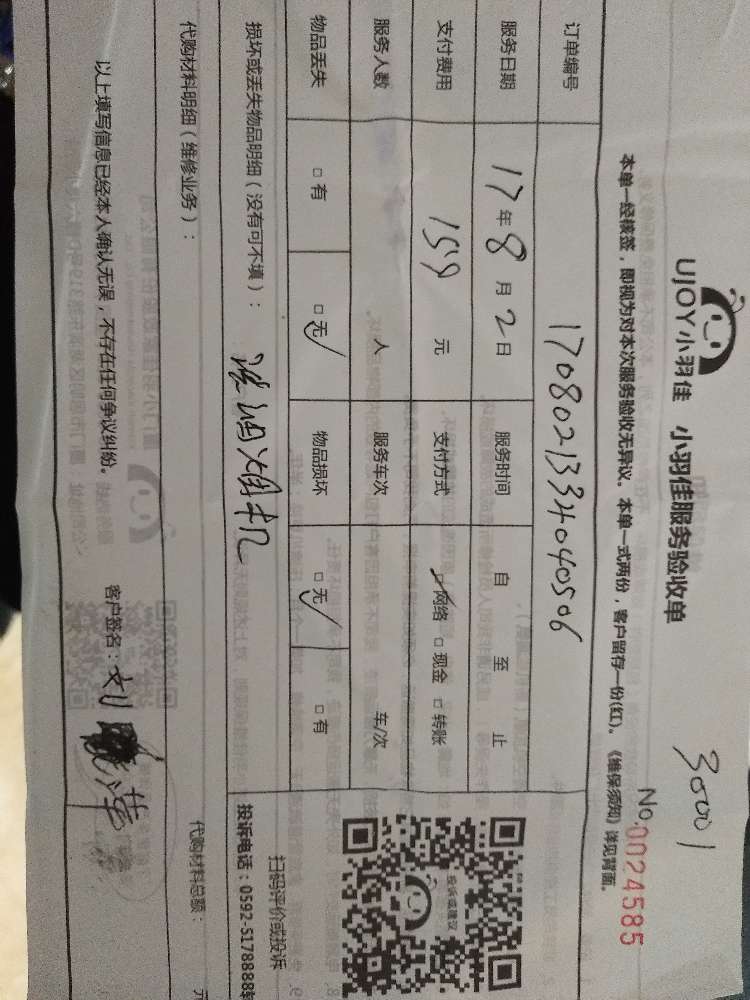 UJOY小羽佳 小羽佳服务验收单
30001
No.0024585
本单一经核签，即视为对本次服务验收无异议。本单一式两份，客户留存一份(红)。《维保须知》详见背面。
订单编号 1708021334040506
服务日期 17年8月2日 服务时间 自 至 止
支付费用 159 元 支付方式 ☑网络 □现金 □转账
服务人数 人 服务车次 车/次
物品丢失 □有 ☑无 物品损坏 ☑无 □有
损坏或丢失物品明细（没有可不填）：
油烟机
扫码评价或投诉
投诉电话：0592-5178888转
投诉或建议
代购材料明细（维修业务）： 代购材料总额： 元
以上填写信息已经本人确认无误，不存在任何争议纠纷。 客户签名：刘